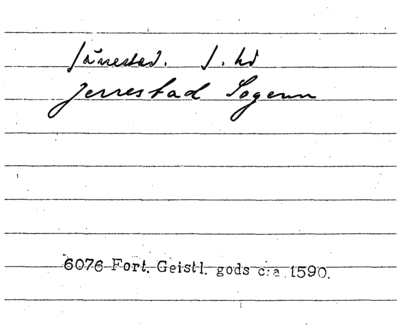 Järrestad. J. hd
Jerrestad Sogenn
6076 Fort. Geistl. gods c:a 1590.